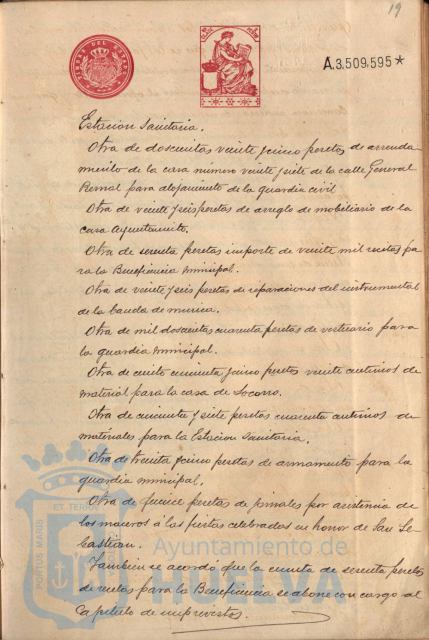 19
TIMBRE DEL ESTADO
A.3,509,595*
Estacion Sanitaria.
Otra de doscientas veinte y cinco pesetas de arrenda
miento de la casa número veinte y siete de la calle General
Bernal para alojamiento de la guardia civil
Otra de veinte y seis pesetas de arreglo de mobiliario de la
casa Ayuntamiento.
Otra de sesenta pesetas importe de veinte mil recetas pa
ra la Beneficencia Municipal.
Otra de veinte y seis pesetas de reparaciones del instrumental
de la banda de musica.
Otra de mil doscientas cuarenta pesetas de vestuario para
la guardia Municipal.
Otra de ciento cincuenta y cinco pesetas veinte centimos de
material para la casa de Socorro.
Otra de cincuenta y siete pesetas cuarenta centimos de
materiales para la Estacion Sanitaria.
Otra de treinta y cinco pesetas de armamento para la
guardia municipal.
Otra de quince pesetas de jornales por asistencia de
los maceros á las fiestas celebradas en honor de San Se
bastian.
Tambien se acordó que la cuenta de sesenta pesetas
de recetas para la Beneficencia se abone con cargo al
Capitulo de imprevistos.
PORTUS MARIS ET TERRAE
Ayuntamiento de
HUELVA